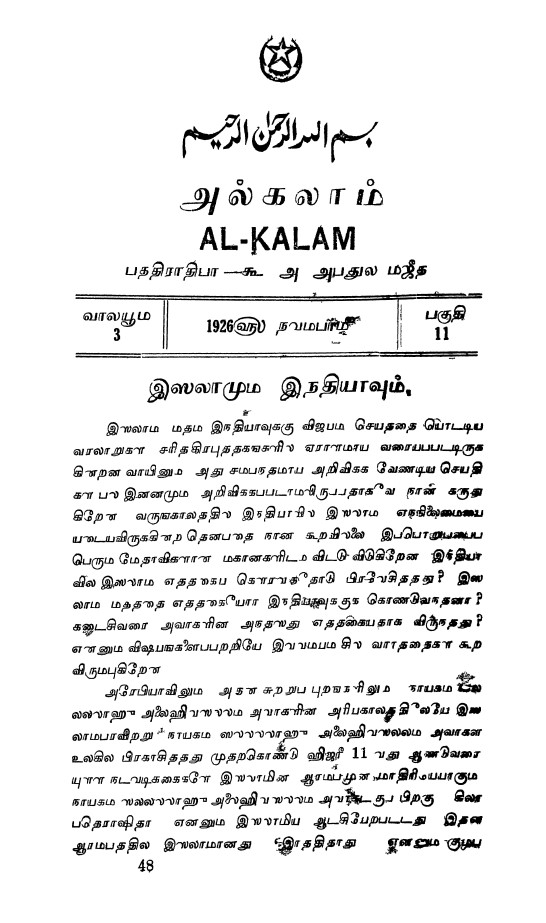 بسم الله الرحمن الرحيم
அல்கலாம்
AL-KALAM
பததிராதிபா —கூ அ அபதுல மஜீத
வாலயூம
3
1926ஹு நவமபர்
பகுதி
11
இஸலாமும இநதியாவும்.
இஸலாம மதம இநதியாவுககு விஜபம செயததை யொடடிய
வாலாறுகள சரிதகிரபுததகஙகளில ஏராளமாய வரையபபடடிருக
கினறன வாயினும அது சமபநதமாய அறிவிகக வேணடிய செயதி
கள பல இனனமும அறிவிககபபடாமலிருபபதாகவே நான கருது
கிறேன வருஙகாலததில இநதியாவில இஸலாம எநநிலைமையை
யடையவிருககினற தெனபதை நான கூறவிலலை இபபொறுபபைப
பெரும மேதாவிகளான மகானகளிடம விடடு விடுகிறேன இநதியா
வில இஸலாம எததகைப கௌரவததோடு பிரவேசிததது? இஸ
லாம மததை எததகையோர இநதியாவுககுக கொணடுவநதனர?
கடைசிவரை அவாகளின அநதஸது எததகையதாக விருநதது?
எனனும விஷயஙகளைபபறறியே இவவமபமசில வாாததைகள கூற
விருமபுகிறேன
அரேபியாவிலும அதன சுறறுப புறஙகளிலும நாயகம ஸல
லலலாஹு அலைஹிவஸலலம அவாகளின அரியகாலததிலேயே இஸ
லாமபரவிறறு நாயகம ஸலலலலாஹு அலைஹிவஸலலம அவாகள
உலகில பிரகாசிததது முதறகொணடு ஹிஜரீ 11 வது ஆணடுவரை
யுளள நடவடிககைகளே இஸலாமின ஆரமபமுன மாதிரியபபாகும
நாயகம ஸலலலலாஹு அலைஹிவஸலலம அவாகடகுப பிறகு கிலா
பதெராஷிதா எனனும இஸலாமிய ஆடசியேறபடடது இதன
ஆரமபததில இஸலாமானது இாததிதாது எனனும குழப
48